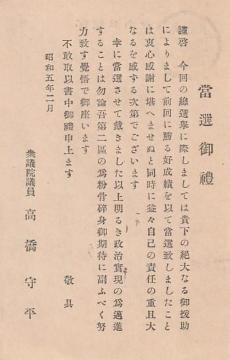 當選御禮
謹啓 今回の總選擧に際しましては貴下の絶大なる御援助
によりまして前回に勝る好成績を以て當選致しましたこと
は衷心感謝に堪へませぬと同時に益々自己の責任の重且大
なるを感する次第でございます
幸に當選させて戴きました以上明るき政治實現の爲邁進
することは勿論吾第二區の爲粉骨碎身御期待に副ふべく努
力致す覺悟で御座います
不敢取以書中御禮申上ます
敬具
昭和五年二月
衆議院議員 高橋守平